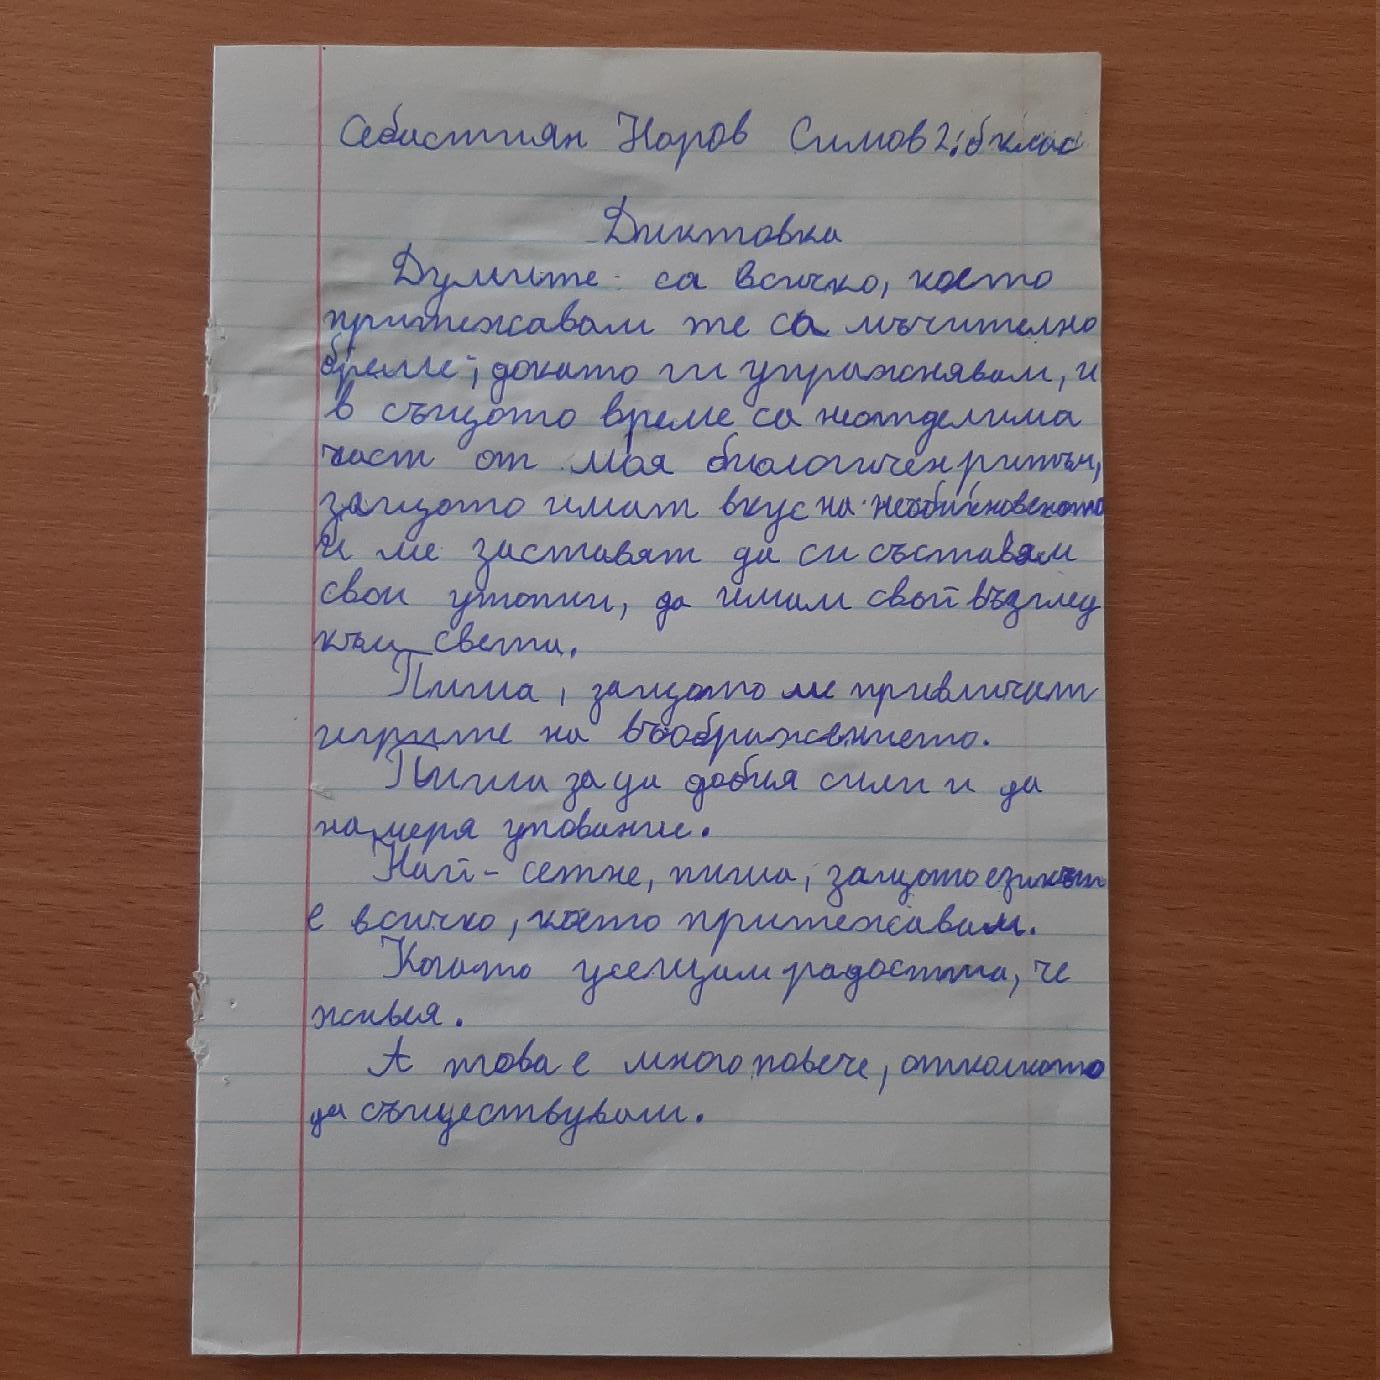 Себастиян Норов Симов 2. б клас
Диктовка
Думите са всичко, което
притежавам те са мъчително
бреме, докато ги упражнявам, и
в същото време са неотделима
част от моя биологичен ритъм,
защото имат вкус на необикновеното
и ме заставят да си съставям
свои утопии, да имам свой възглед
към света.
Пиша, защото ме привличат
игрите на въображението.
Пиша за да добия сили и да
намеря упование.
Най-сетне, пиша, защото езикът
е всичко, което притежавам.
Когато усещам радостта, че
живея.
А това е много повече, отколкото
да съществувам.